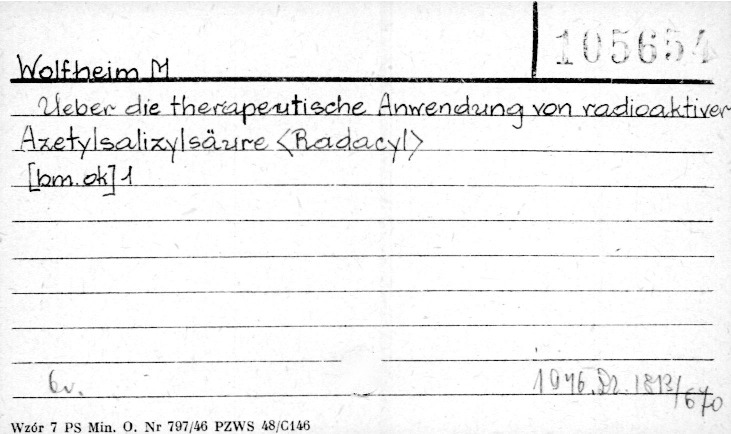 105654
Wolfheim M
Ueber die therapeutische Anwendung von radioaktiver
Azetylsalizylsäure <Radacyl>
[bm.ok] 1
1946.Dr. 1813/670
Wzór 7 PS Min. O. Nr 797/46 PZWS 48/G146